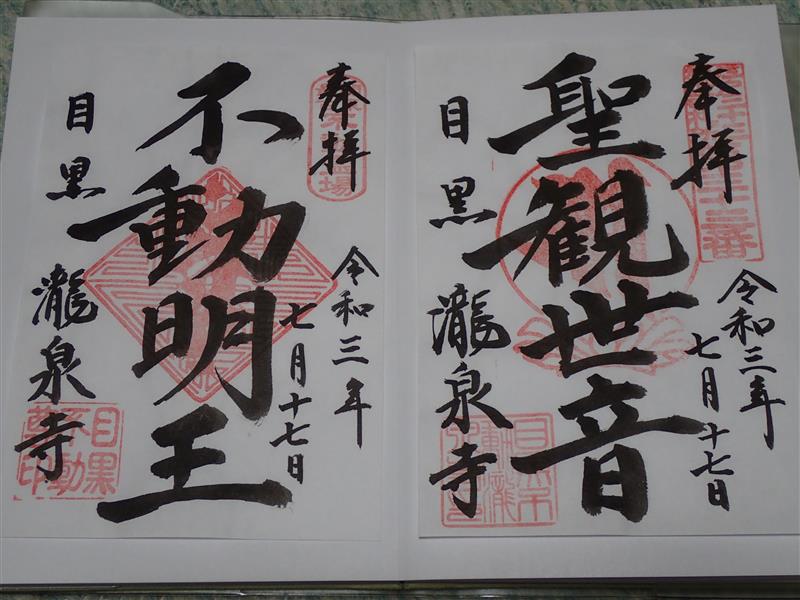 奉拝
聖観世音
令和三年
七月十七日
目黒 瀧泉寺
奉拝
不動明王
令和三年
七月十七日
目黒 瀧泉寺
目黒
不動
尊印